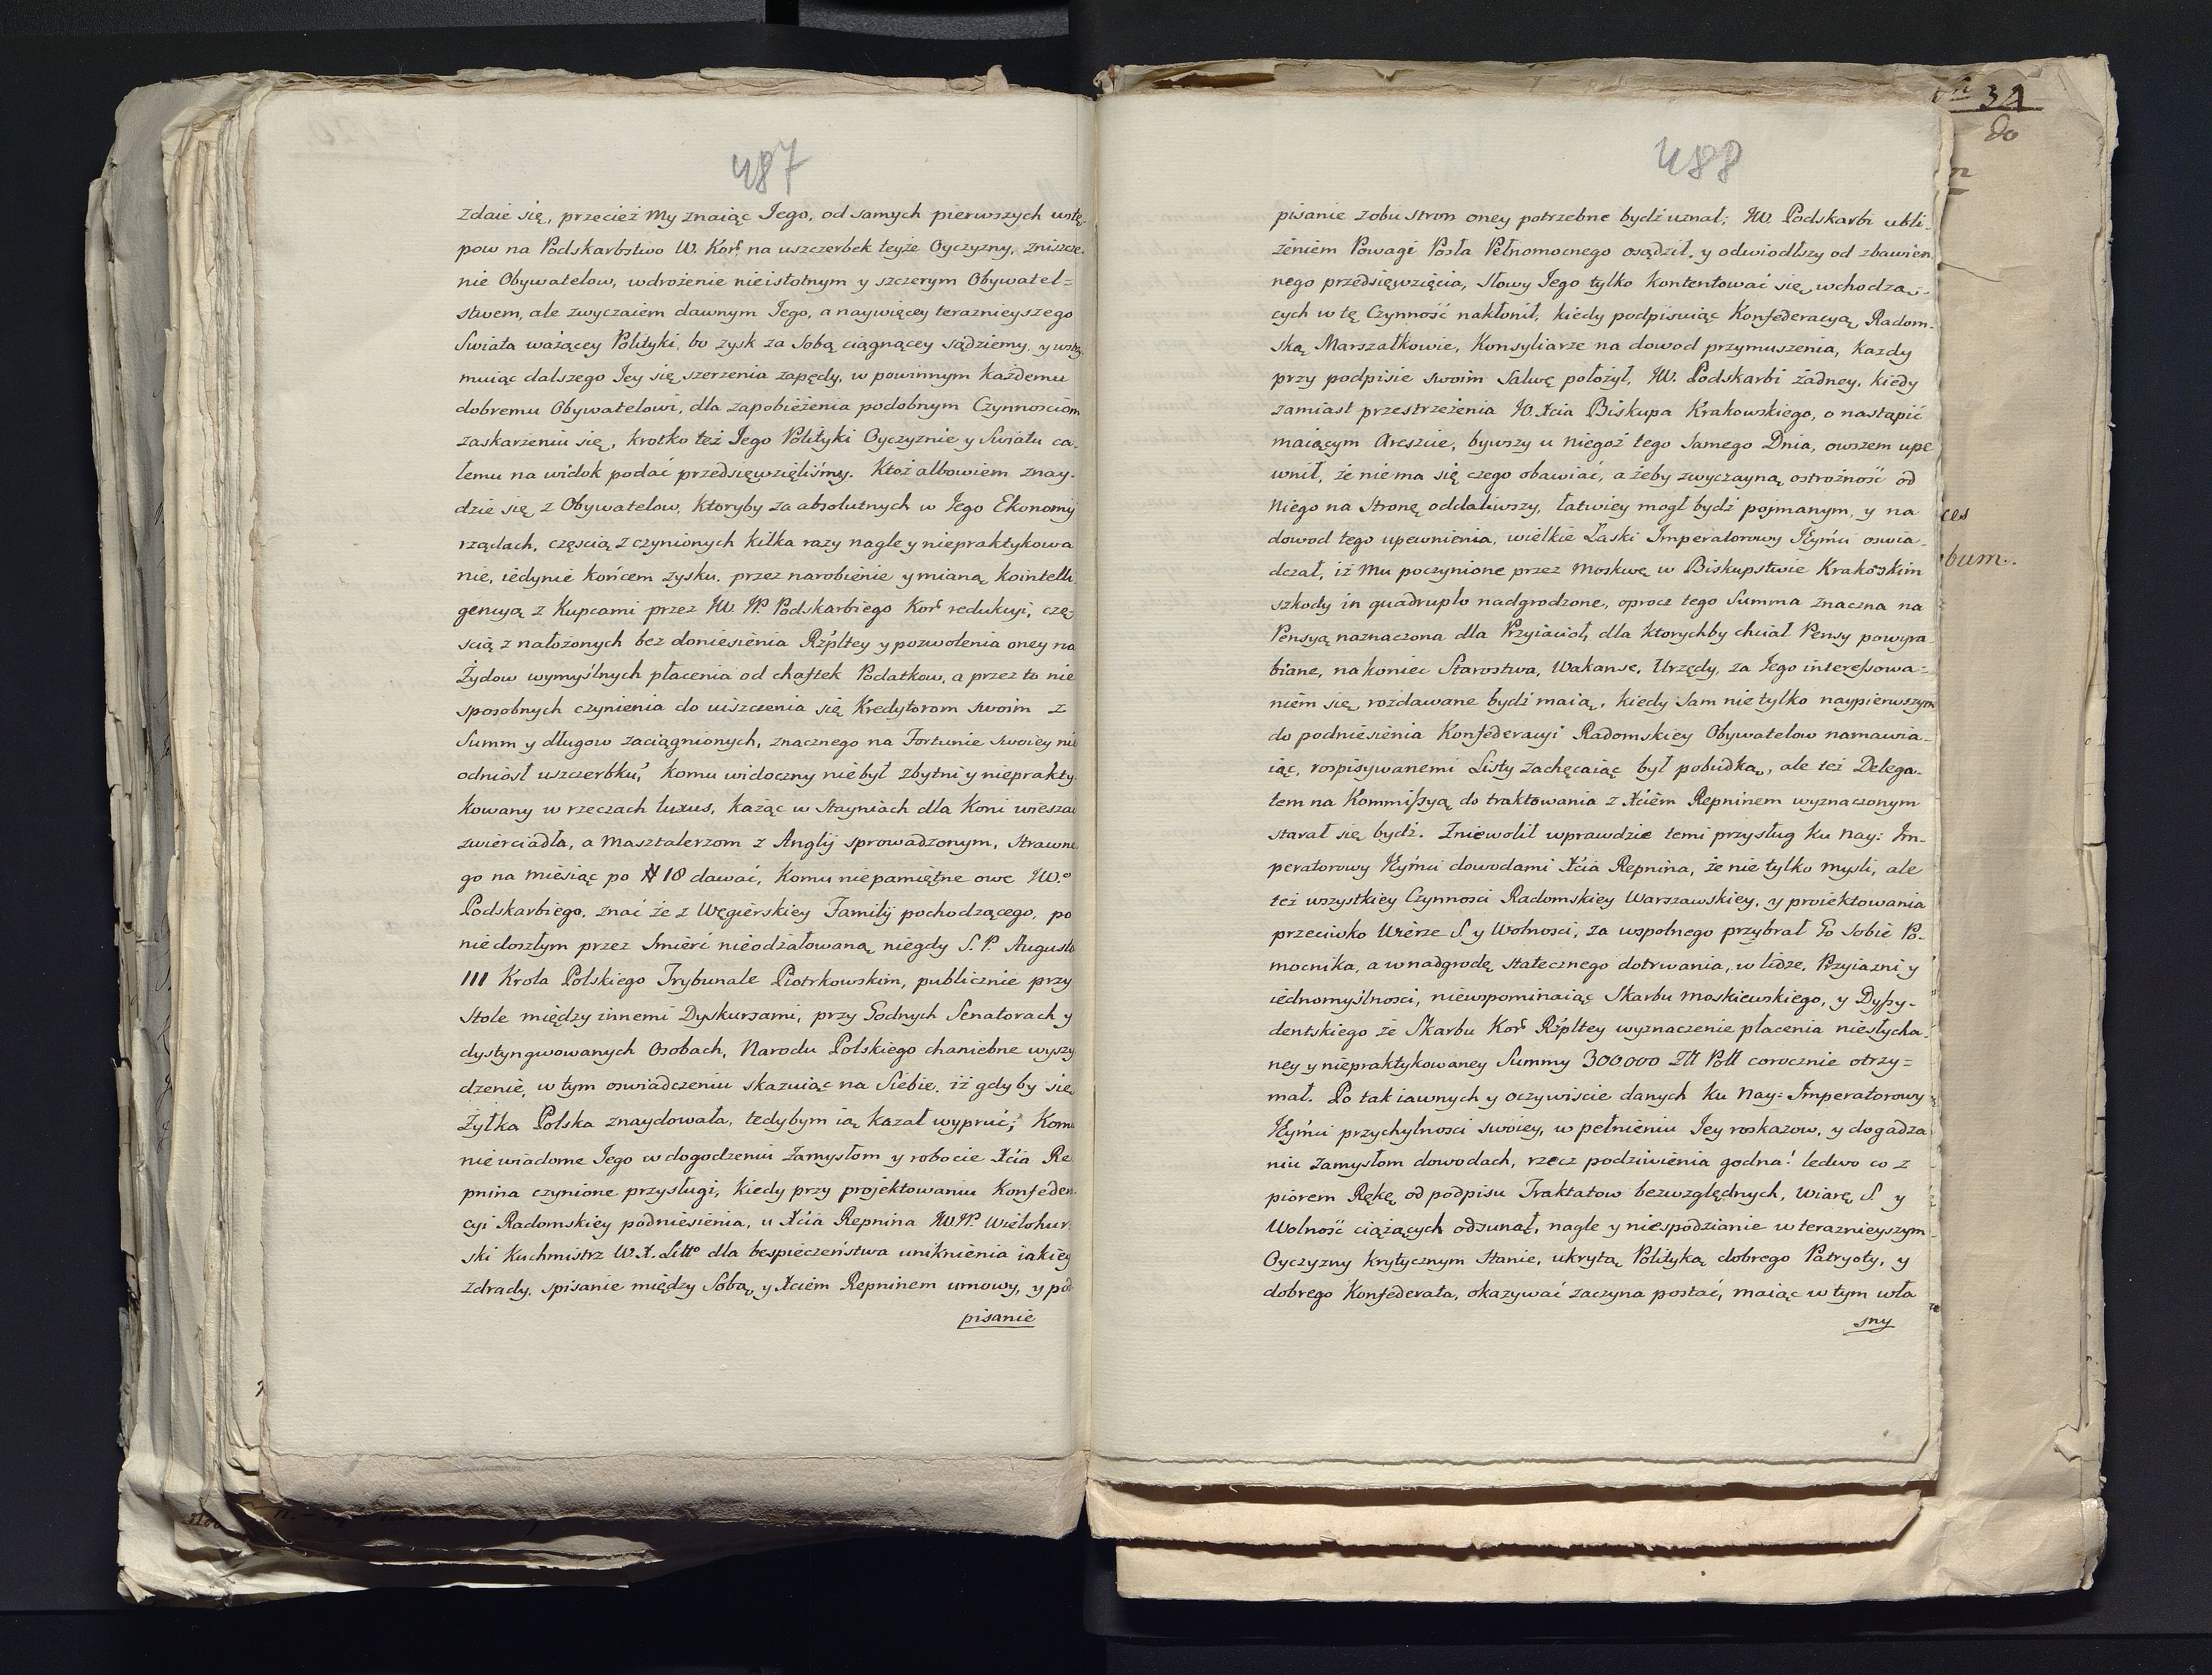 487
zdaie się, przecież My znaiąc Jego, od samych pierwszych wstę-
pow na Podskarbstwo W. Kor: na uszczerbek teyże Oyczyzny, zniszcze-
nie Obywatelow, wdrożenie nieistotnym y szczerym Obywatel=
stwem, ale zwyczaiem dawnym Jego, a naywięcey teraznieyszego
Swiata ważącey Polityki, bo zysk za sobą ciągnącey sądziemy, y wstrzy
muiąc dalszego Jey się szerzenia zapędy, w powinnym każdemu
dobremu Obywatelowi, dla zapobieżenia podobnym Czynnosciom
zaskarzeniu się, krotko też Jego Polityki Oyczyznie y Swiatu ca-
łemu na widok podać przedsięwzięliśmy. Ktoż albowiem znay-
dzie się z Obywatelow, ktoryby za absolutnych w Jego Ekonomij
rządach, częscią z czynionych kilka razy nagle y niepraktykowa
nie, iedynie końcem zysku, przez narobienie y mianą kointelli-
gencyą z Kupcami przez JW. JP. Podskarbiego Kor: redukcyi, czę-
scią z nałożonych bez doniesienia Rzpltey y pozwolenia oney na
Żydow wymyślnych płacenia od chaftek Podatkow, a przez to nie
sposobnych czynienia do uiszczenia się Kredytorom swoim z
Summ y długow zaciągnionych, znacznego na Fortunie swoiey nie
odniosł uszczerbku? komu widoczny nie był zbytni y nieprakty-
kowany w rzeczach luxus, każąc w Stayniach dla Koni wieszać
zwierciadła, a Masztalerzom z Anglij sprowadzonym, strawne
go na miesiąc po # 18 dawać, Komu niepamiętne owe JW.º
Podskarbiego, znać że z Węgierskiey Familij pochodzącego, po
niedoszłym przez Smierć nieodżałowaną niegdy S. P. Augusta
III Krola Polskiego Trybunale Piotrkowskim, publicznie przy
stole między innemi Dyskursami, przy Godnych Senatorach y
dystyngwowanych Osobach, Narodu Polskiego chaniebne wyszy
dzenie, w tym oswiadczeniu skazuiąc na Siebie, iż gdyby się
Żyłka Polska znaydowała, tedybym ią kazał wypruć; Komu
niewiadome Jego w dogodzeniu Zamysłom y robocie Xcia Re
pnina czynione przysługi, kiedy przy projektowaniu Konfeder-
cyi Radomskiey podniesienia, u Xcia Repnina JWJP. Wielohur-
ski Kuchmistrz W. X. Litt° dla bespieczeństwa uniknienia iakiey
zdrady, spisanie między Sobą y Xciem Repninem umowy, y pod
pisanie
488
pisanie z obu stron oney potrzebne bydź uznał; JW. Podskarbi ubli-
żeniem Powagi Posła Pełnomocnego osądził, y odwiodłszy od zbawien
nego przedsięwzięcia, słowy Jego tylko kontentować się wchodzą-
cych w tę Czynność nakłonił, kiedy podpisuiąc Konfederacyą Radom-
ską Marszałkowie, Konsyliarze na dowod przymuszenia, każdy
przy podpisie swoim salwę położył, JW. Podskarbi żadney, kiedy
zamiast przestrzeżenia JO. Xcia Biskupa Krakowskiego, o nastąpić
maiącym Areszcie, bywszy u niegoż tego samego Dnia, owszem upe
wnił, że niema się czego obawiać, a żeby zwyczayną ostrożność od
niego na stronę oddaliwszy, łatwiey mogł bydź poymanym, y na
dowod tego upewnienia, wielkie Łaski Imperatorowy Jeymci oswia-
dczał, iż Mu poczynione przez Moskwę w Biskupstwie Krakoskim
szkody in quadruplo nadgrodzone, oprocz tego Summa znaczna na
Pensyą naznaczona dla Przyiacioł, dla ktorychby chciał Pensy powyra-
biane, nakoniec Starostwa, Wakanse, Urzędy, za Jego interessowa=
niem się, rozdawane bydź maią, kiedy sam nie tylko naypierwszym
do podniesienia Konfederacyi Radomskiey Obywatelow namawia-
iąc, rospisywanemi Listy zachęcaiąc był pobudką, ale też Delega-
tem na Kommissyą do traktowania z Xciem Repninem wyznaczonym
starał się bydź. Zniewolił wprawdzie temi przysług ku Nay: Im-
peratorowy Jeymci dowodami Xcia Repnina, że nie tylko mysli, ale
też wszystkiey Czynnosci Radomskiey Warszawskiey, y proiektowania
przeciwko Wierze S. y Wolnosci, za wspolnego przybrał Go sobie Po-
mocnika, a w nadgrodę statecznego dotrwania, w lidze, Przyiazni y
iednomyślnosci, niewspominaiąc Skarbu Moskiewskiego, y Dyssy-
dentskiego że Skarbu Kor: Rzpltey wyznaczenie płacenia niesłycha-
ney y niepraktykowaney Summy 300.000 Złł Poll corocznie otrzy=
mał. Po tak iawnych y oczywiscie danych ku Nay: Imperatorowy
Jeymci przychylnosci swoiey, w pełnieniu Jey roskazow, y dogadza
niu Zamysłom dowodach, rzecz podziwienia godna! ledwo co z
piorem Rękę od podpisu Traktatow bezwzględnych, Wiarę S. y
Wolność ciążących odsunął, nagle y niespodzianie w teraznieyszym
Oyczyzny krytycznym Stanie, ukrytą Polityką dobrego Patryoty, y
dobrego Konfederata, okazywać zaczyna postać, maiąc w tym wła
sny
do
bum.